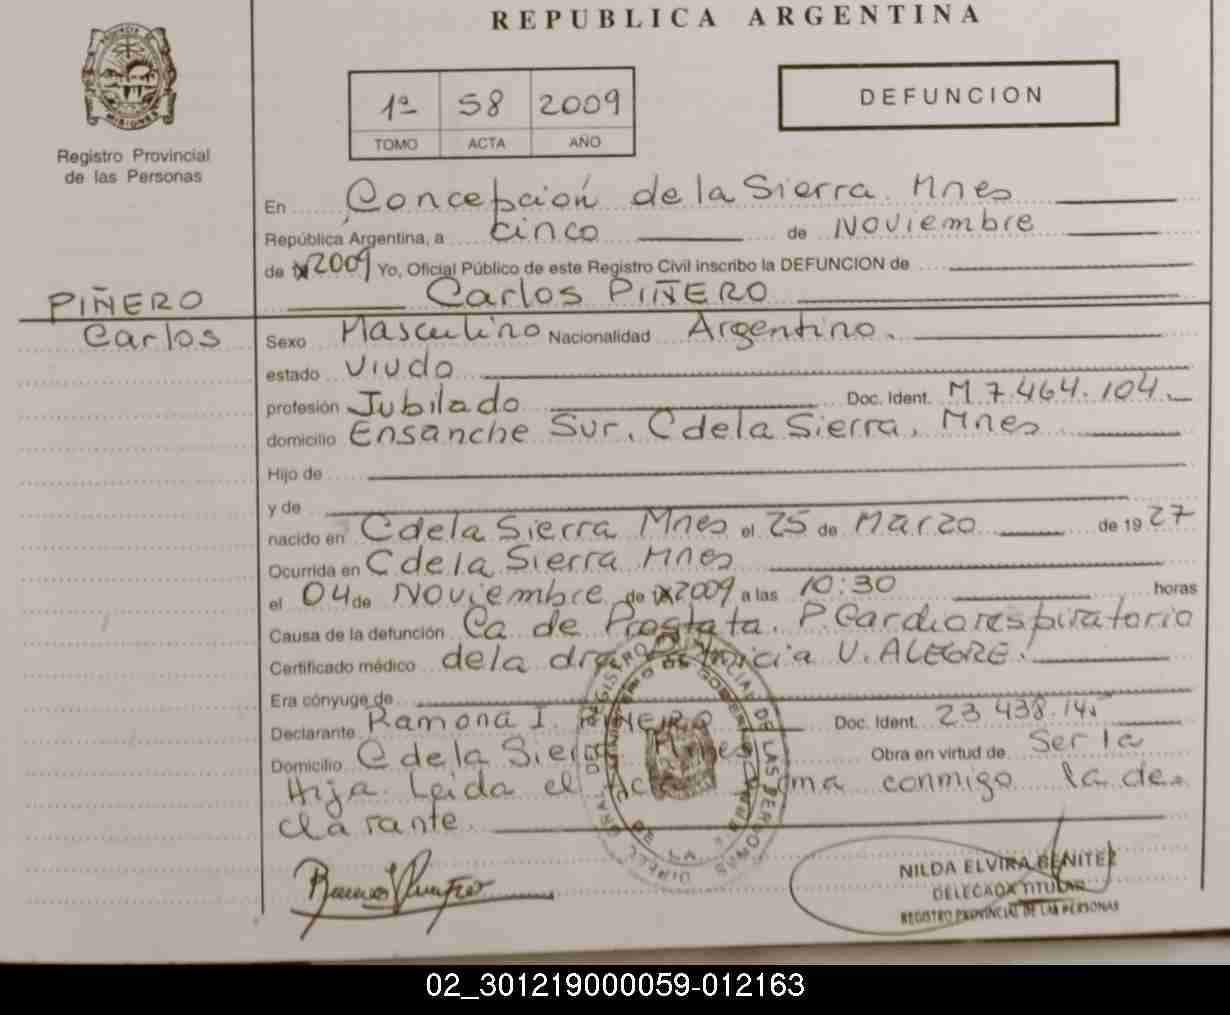 REPUBLICA ARGENTINA
PROVINCIA DE
MISIONES
Registro Provincial
de las Personas
1ª 58 2009
TOMO ACTA AÑO
DEFUNCION
En Concepción de la Sierra. Mnes
República Argentina, a cinco de Noviembre
de 2009 Yo, Oficial Público de este Registro Civil inscribo la DEFUNCION de
Carlos PIÑERO
PIÑERO
Carlos
Sexo Masculino Nacionalidad Argentino.
estado Viudo
profesión Jubilado Doc. Ident. M.7.464.104.
domicilio Ensanche Sur. C de la Sierra. Mnes
Hijo de
y de
nacido en C de la Sierra Mnes el 25 de Marzo de 1927
Ocurrida en C de la Sierra Mnes
el 04 de Noviembre de 2009 a las 10:30 horas
Causa de la defunción Ca de Prostata. P. Cardiorespiratorio
Certificado médico de la dra V. ALEGRE.
Era cónyuge de
Declarante Ramona I. PIÑEIRO Doc. Ident. 23 438.
Domicilio C de la Sierra Mnes Obra en virtud de Ser la
Hija. Leida el Acta firma conmigo la de
clarante.
NILDA ELVIRA BENITEZ
DELEGADA TITULAR
REGISTRO PROVINCIAL DE LAS PERSONAS
02_301219000059-012163